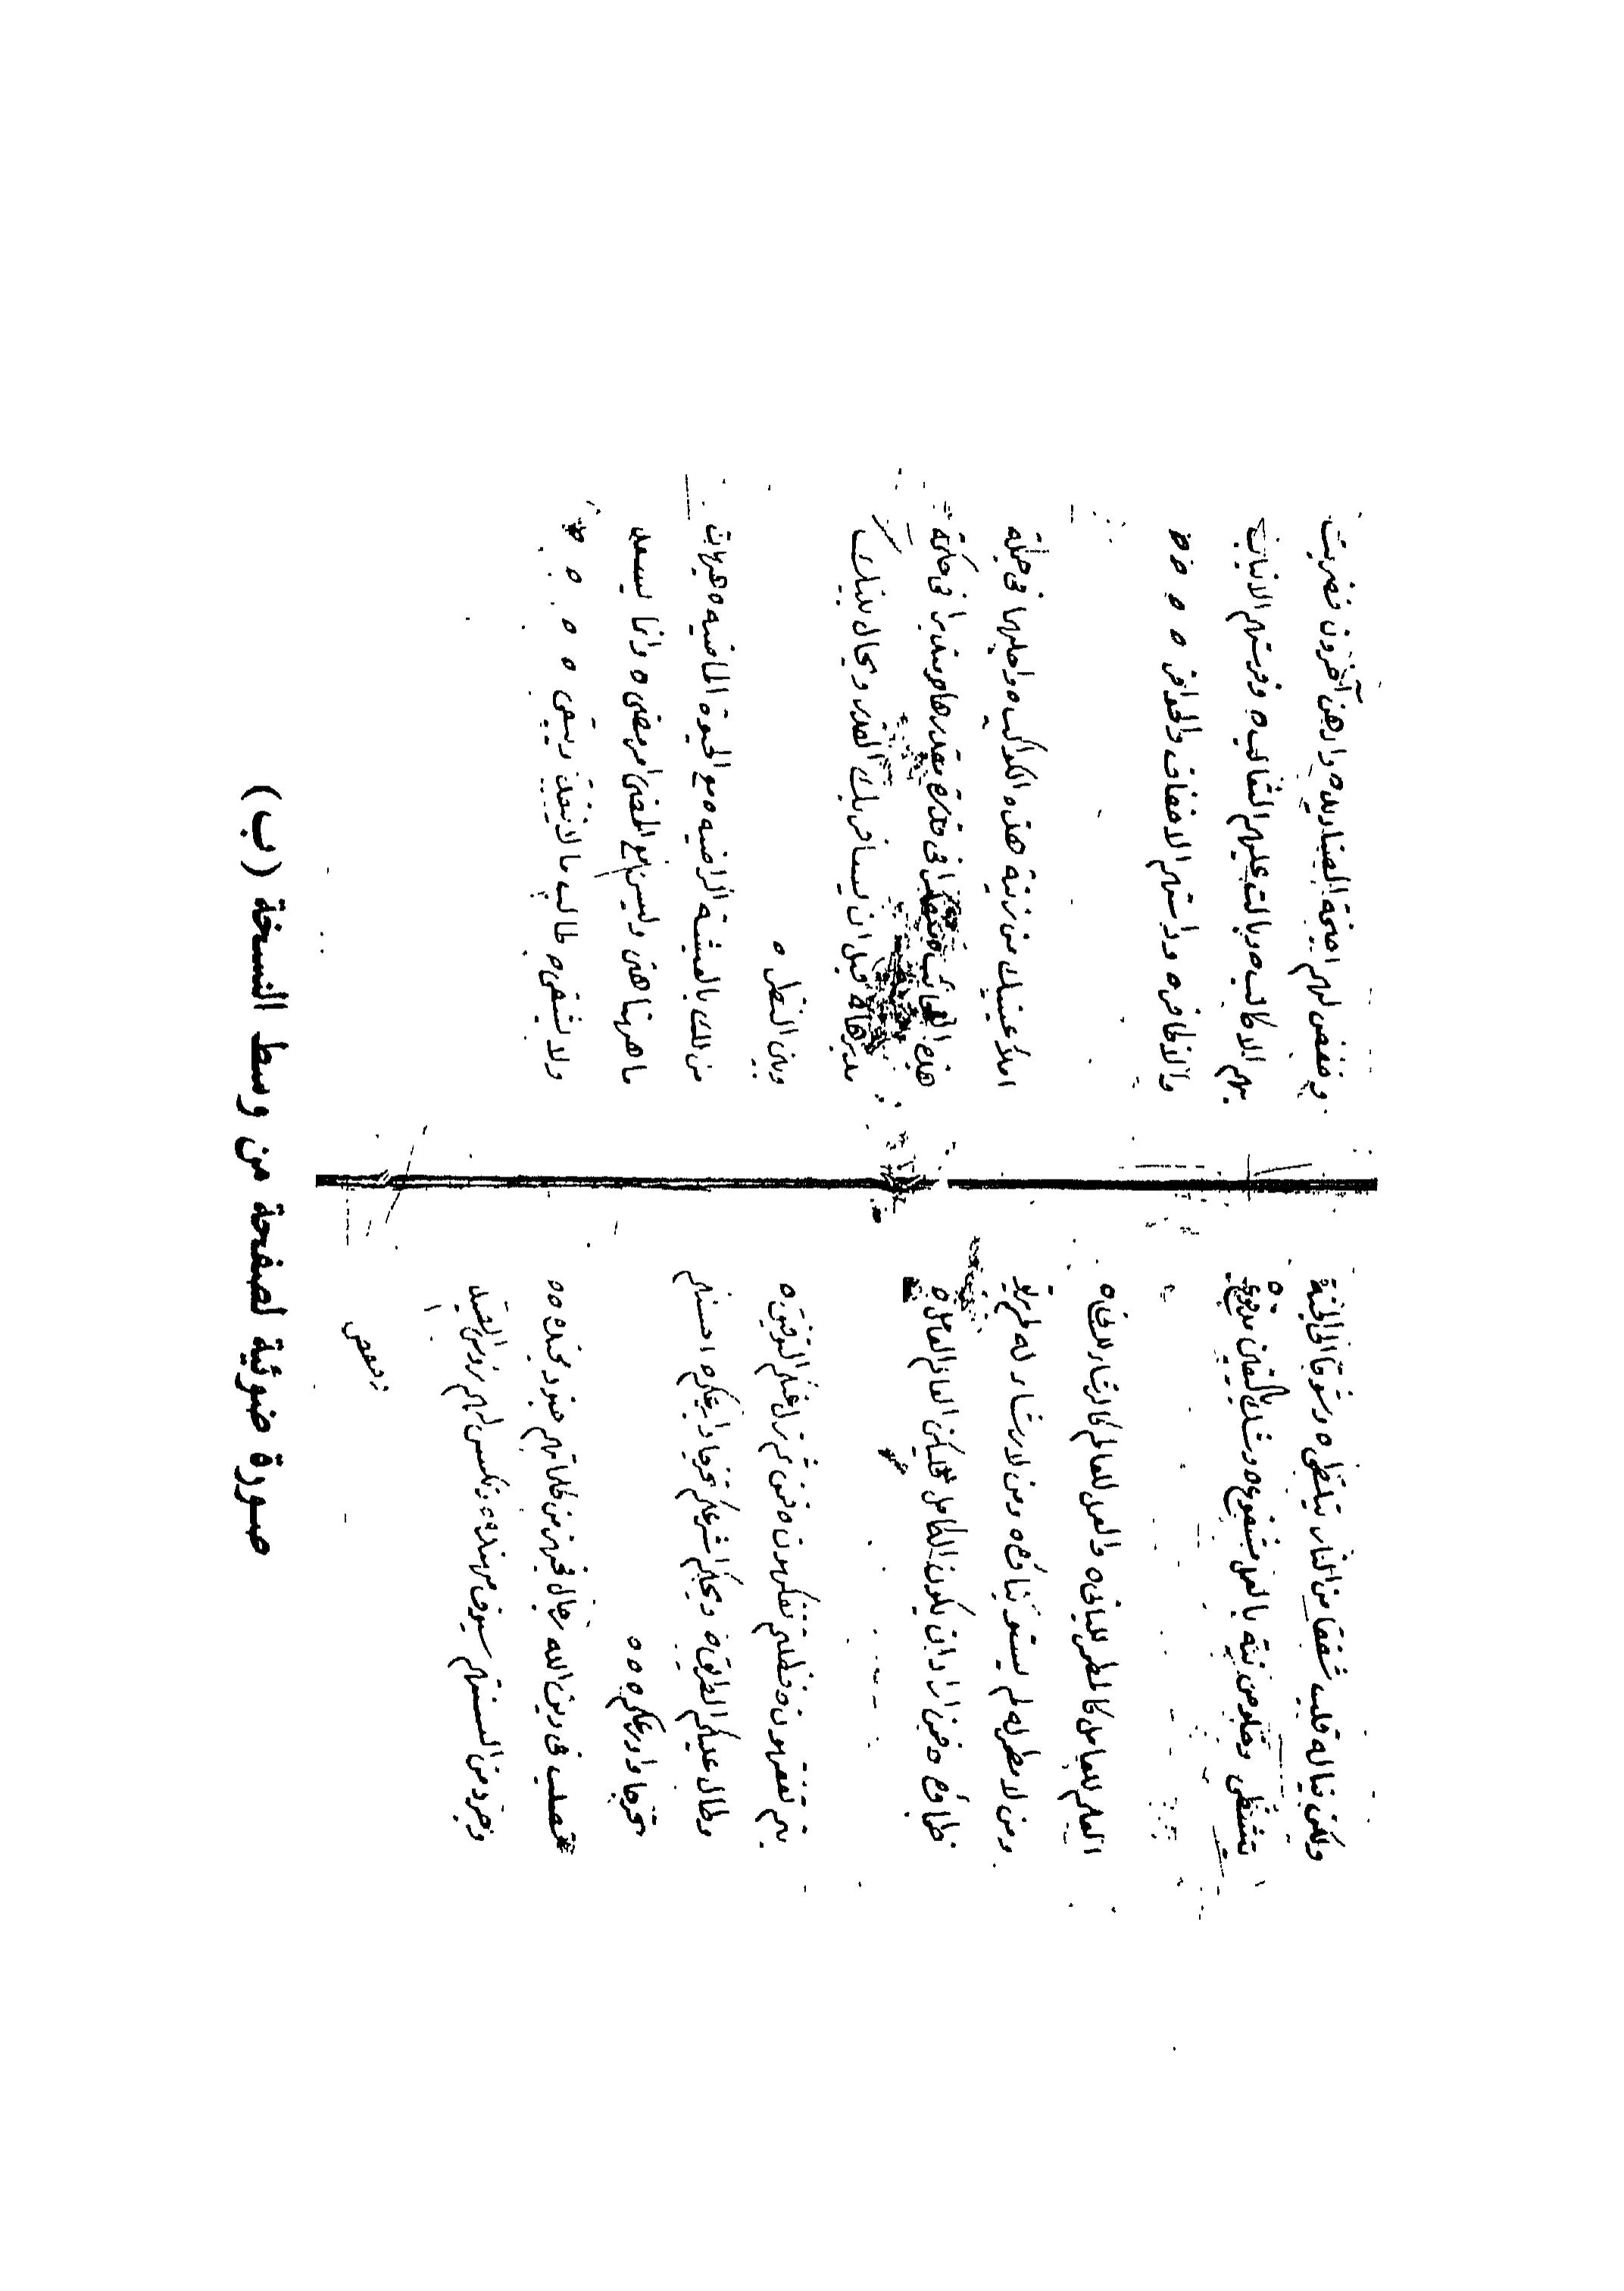 ولكن نياله قلب شفقا من النار يتلظى ه وشوقا الى الجنة
يتشظى وخلو من نية بالعمل مشفوعه وشك باليقين مدفوع
العلم للعامل كالمطر ه والعمل للعالم كالرشاء
ومن لا مطر له لم يستو بناؤه ومن لا رشاء له لم يرو
ظماؤه ه فمن اراد ان يكون الكامل فليكن العالم العامل ه
تفقهون ه فظلتم تفكهون ه فمن ثم زل عنكم التوفيق ه
وطال عليكم الطريق ه ويحكم اشرعكم تخرجا ه احسنكم
تحرجا واورعكم ه ه ه
تصلب في دين الله رجال من كلماتهم جنود مجنده ه ه
وجرد من السنتهم سيوف مهنده ه ونكس لهم رؤس الصيد
وخفض
وخفض لهم اجنحة الصناديد ه وادهن آخرون فضريت
بهم الاكالب ه وبالت عليهم الثعالب ه وفرستهم الانياب
والاظافر ه وداستهم الاخفاف والحوافر ه ه ه ه
املأ عينيك من زينة هذه الكواكب ه واجلهما في جملة
هذه العجائب ه متفكرا في قدرة مقدرها متدبرا في حكمة
مدبرها ه قبل ان يسافر بك القدر ويحال بينك
وبين النظر ه
من لك بالعيشة الراضيه ه مع الحيوة الماضيه ه هيهات
ما ههنا هني وليس مع المضي امر مضي ه وانما يسعد
ولا يشقى ه طالب ما لا ينفد ويبقى ه ه ه ه
صورة ضوئية لصفحة من وسط النسخة (ب)